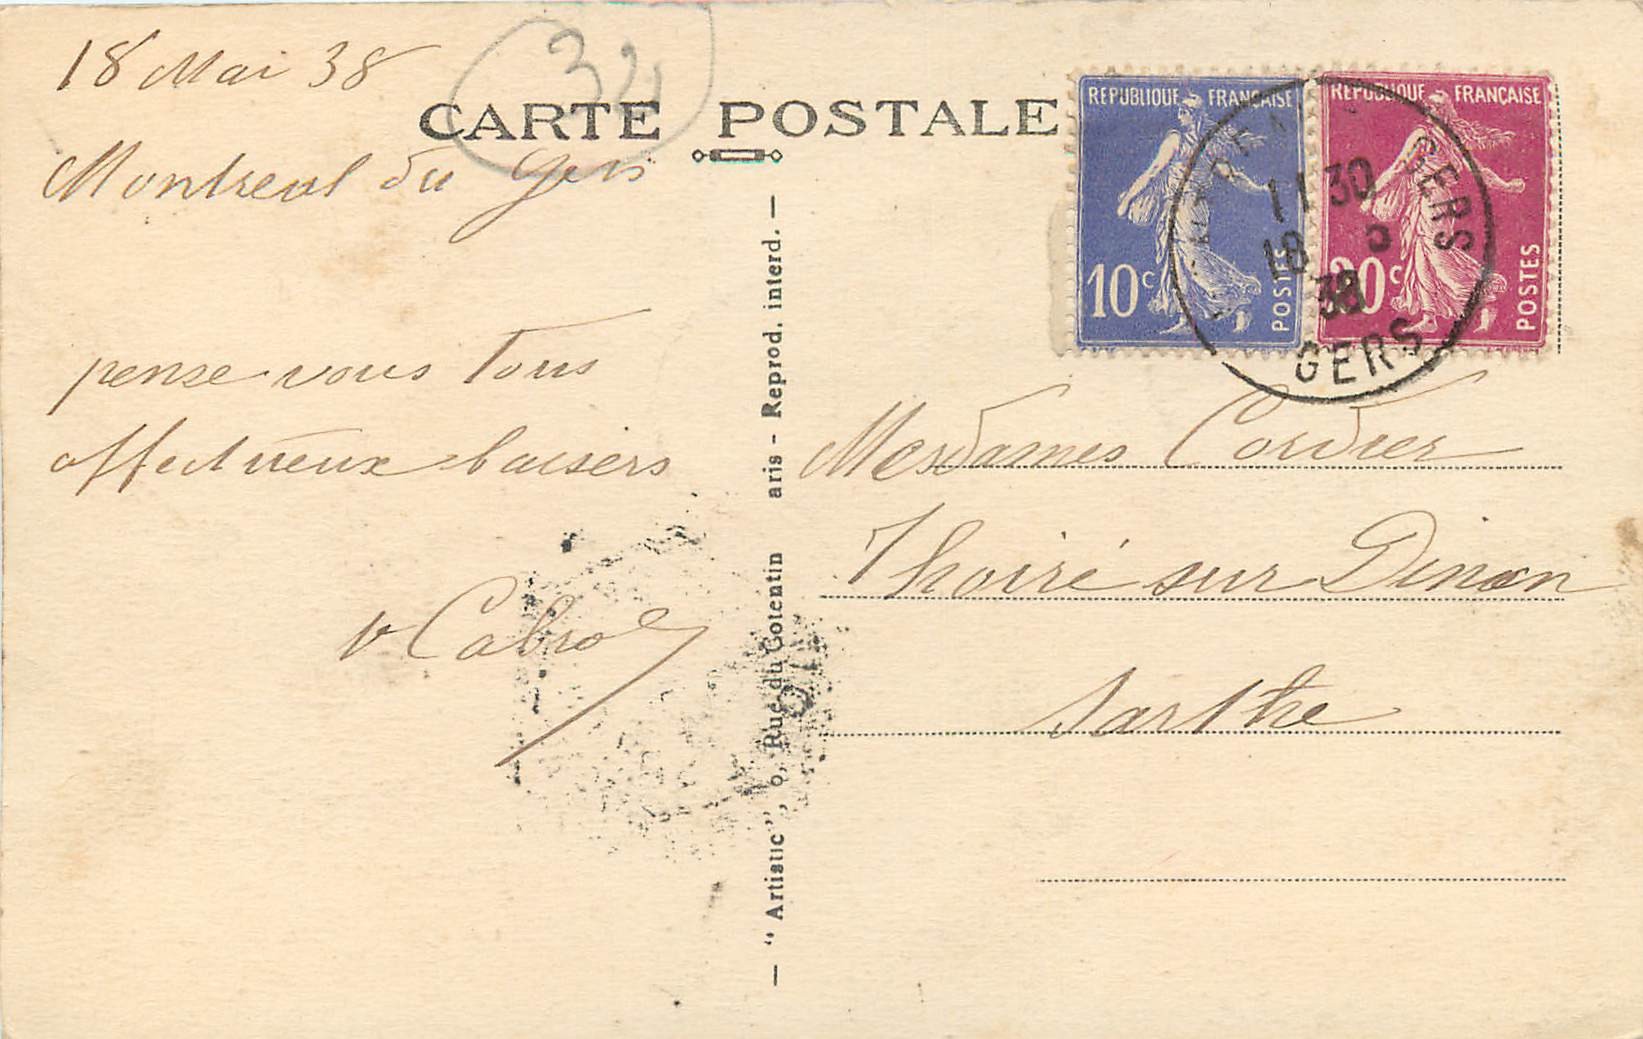 18 Mai 38
32
CARTE POSTALE
Montreal du Gers
pense vous Tous
affectueux baisers
v Cabrol
- " Artistic ", 6, Rue du Cotentin aris - Reprod. interd. -
REPUBLIQUE FRANÇAISE
10c
POSTES
REPUBLIQUE FRANÇAISE
20c
POSTES
GERS
11 30
18 5
38
GERS
Mesdames Cordier
Thoiré sur Dinan
Sarthe